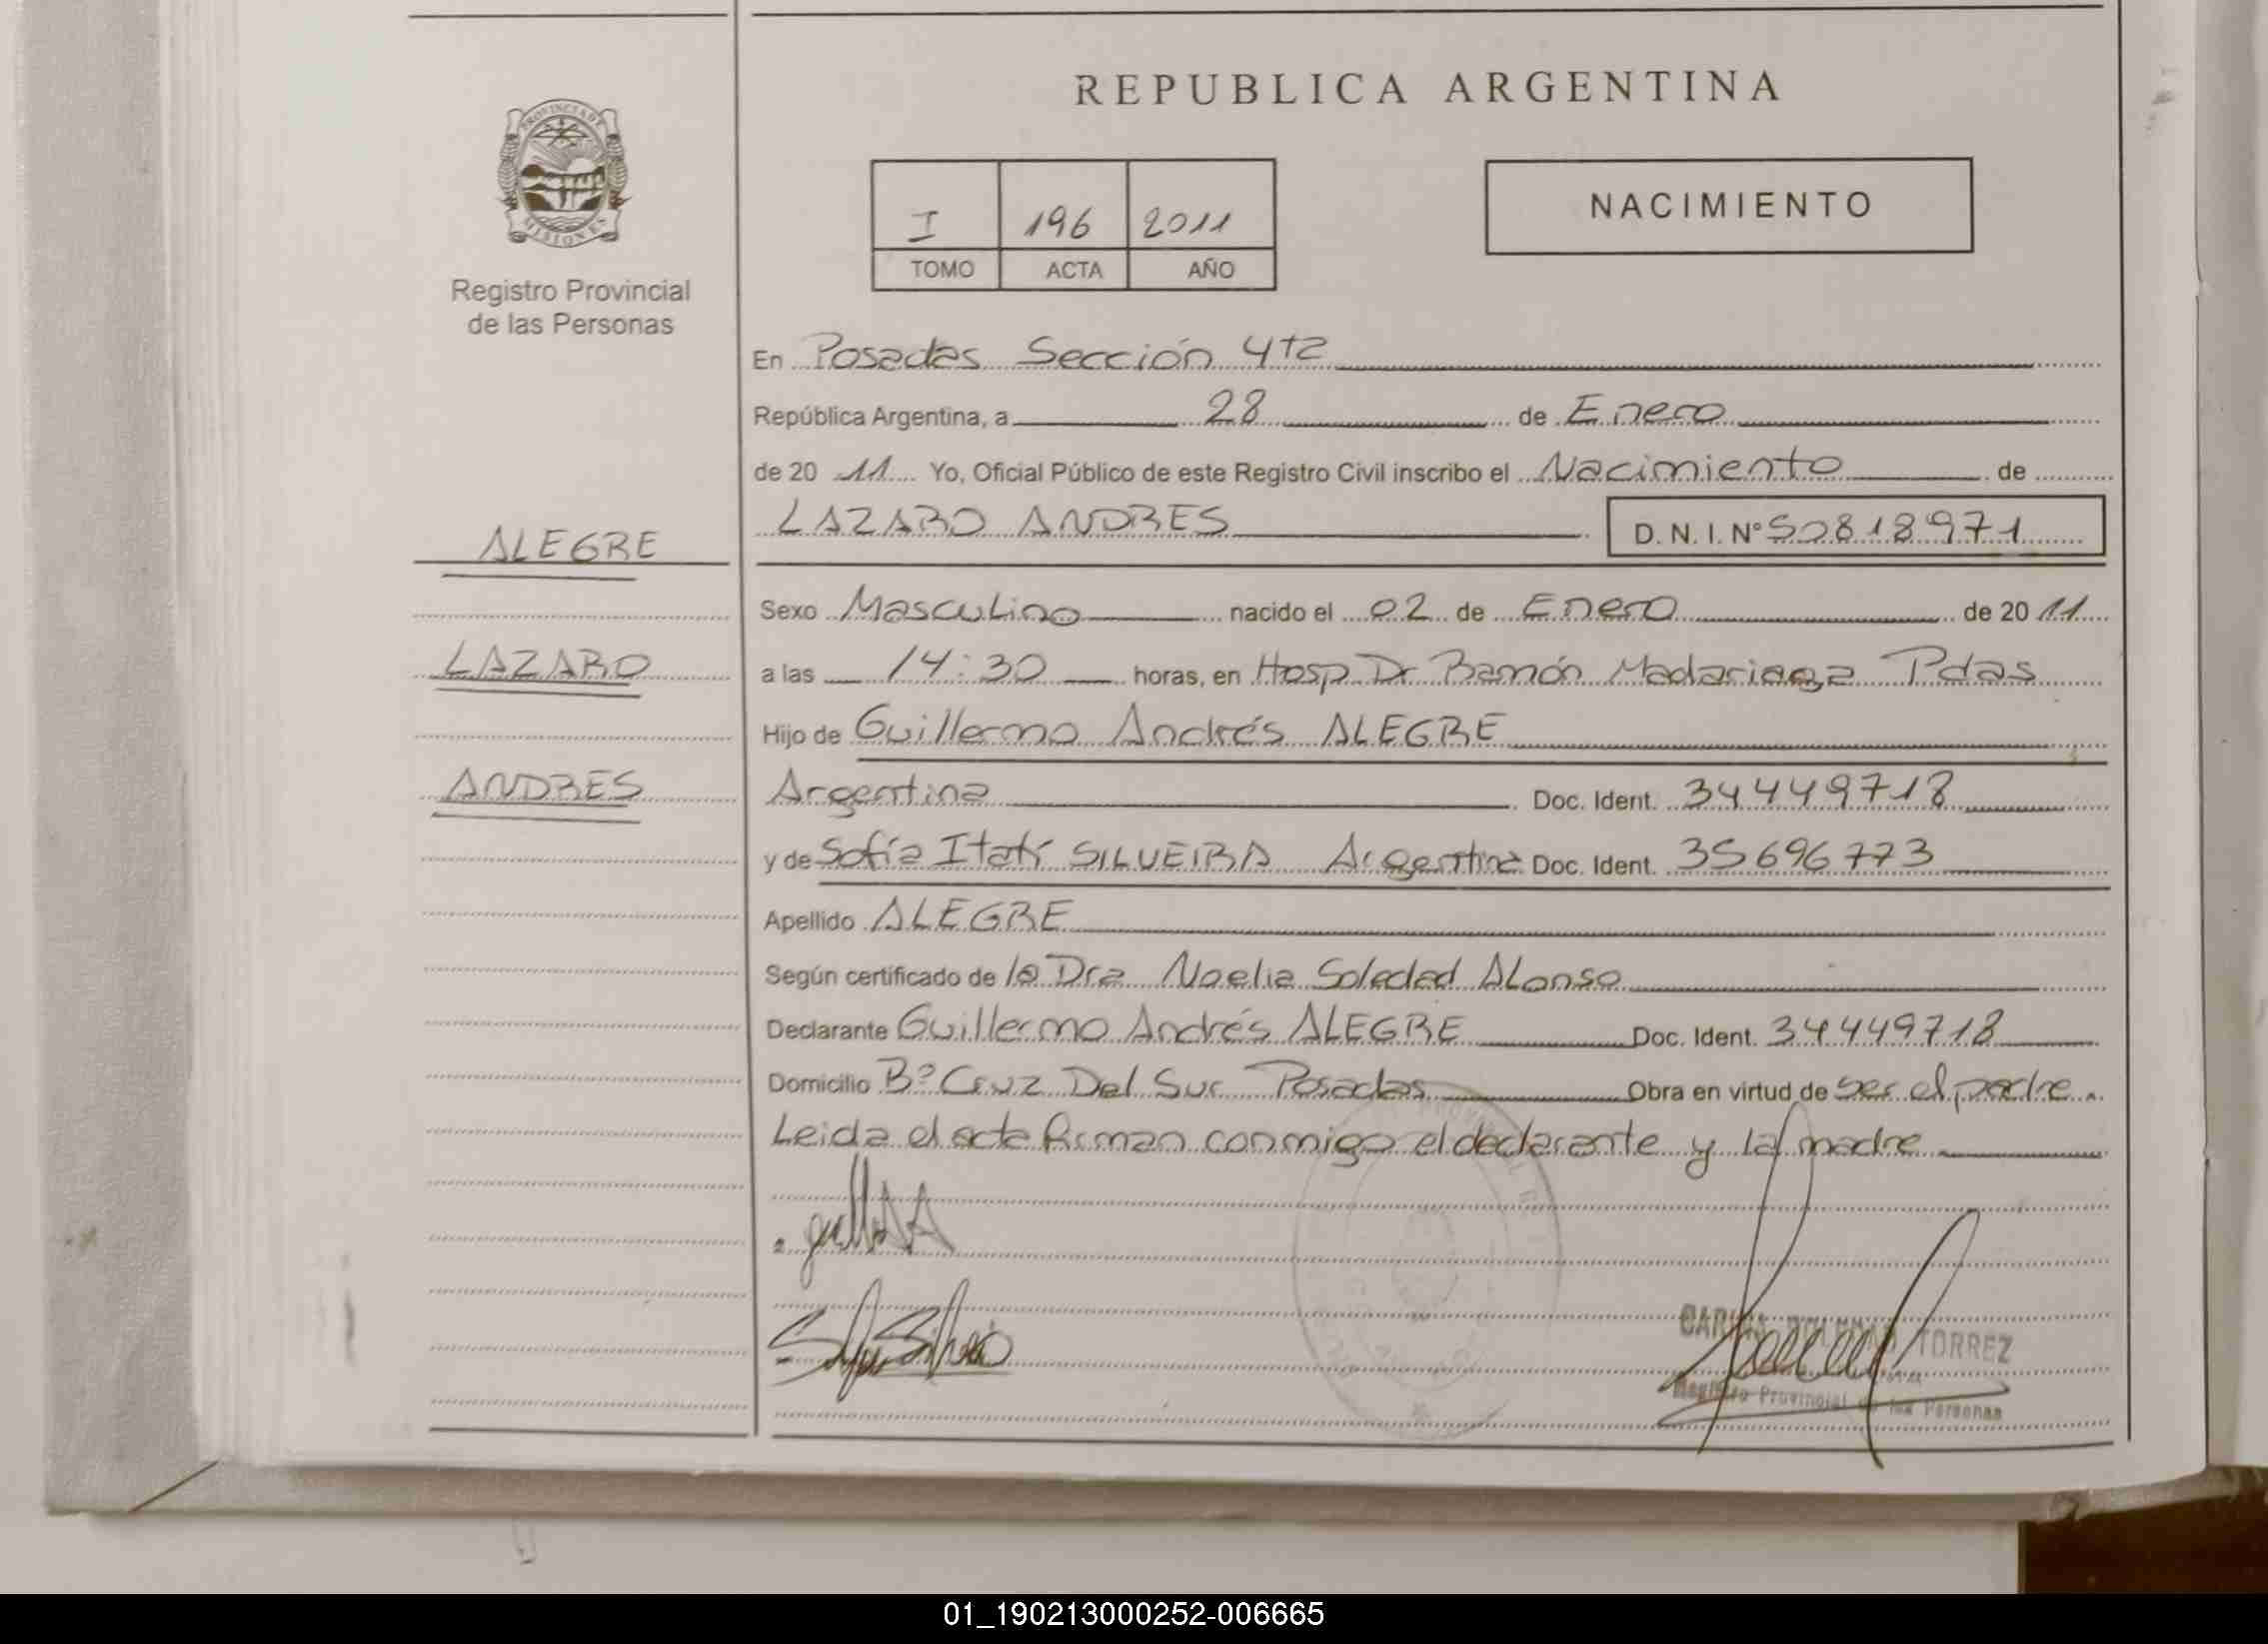 REPUBLICA ARGENTINA
PROVINCIA DE
MISIONES
Registro Provincial
de las Personas
I 196 2011
TOMO ACTA AÑO
NACIMIENTO
En Posadas Sección 4ta
República Argentina, a 28 de Enero
de 20 11 Yo, Oficial Público de este Registro Civil inscribo el Nacimiento de
LAZARO ANDRES D.N.I. Nº 50818971
ALEGRE
LAZARO
ANDRES
Sexo Masculino nacido el 02 de Enero de 20 11
a las 14:30 horas, en Hosp Dr Ramón Madariaga Pdas
Hijo de Guillermo Andrés ALEGRE
Argentina Doc. Ident. 34449718
y de Sofía Itatí SILVEIRA Argentina Doc. Ident. 35696773
Apellido ALEGRE
Según certificado de la Dra Noelia Soledad Alonso
Declarante Guillermo Andrés ALEGRE Doc. Ident. 34449718
Domicilio Bº Cruz Del Sur Posadas Obra en virtud de ser el padre.
Leida el acta firman conmigo el declarante y la madre
TORREZ
Registro Provincial de las Personas
01_190213000252-006665